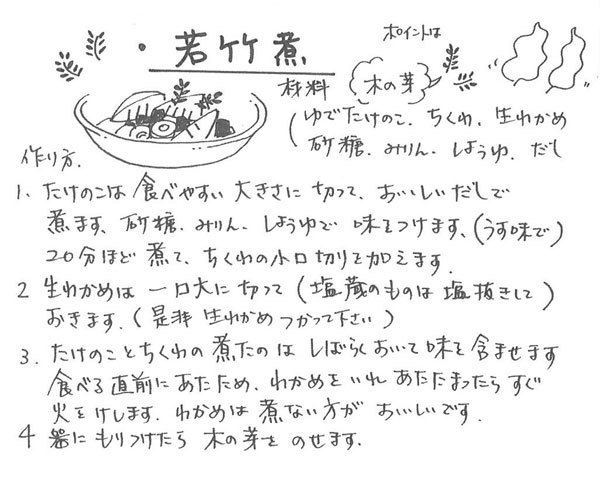 ・若竹煮
ポイントは
木の芽
材料
(ゆでたけのこ、ちくわ、生わかめ
砂糖、みりん、しょうゆ、だし
作り方.
1、たけのこは食べやすい大きさに切って、おいしいだしで
煮ます、砂糖、みりん、しょうゆで味をつけます、(うす味で)
20分ほど煮て、ちくわの小口切りを加えます.
2 生わかめは一口大に切って(塩蔵のものは塩抜きして)
おきます.(是非生わかめつかって下さい)
3. たけのことちくわの煮たのはしばらくおいて味を含ませます
食べる直前にあたため、わかめをいれあたたまったらすぐ
火をけします.わかめは煮ない方がおいしいです.
4 器にもりつけたら木の芽をのせます.